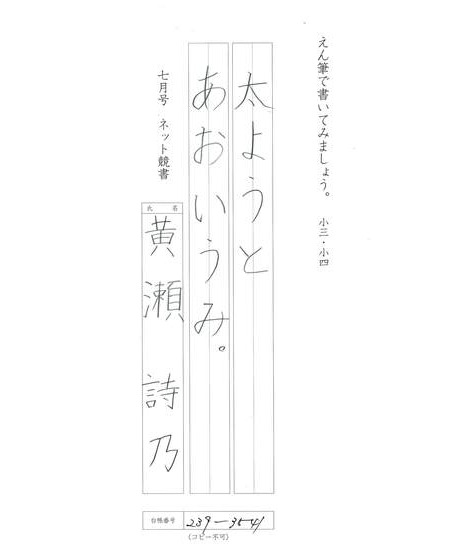 えん筆で書いてみましょう。 小三・小四
太ようと
あおいうみ。
七月号 ネット競書
氏名
黄瀬 詩乃
台帳番号 239-3541
(コピー不可)